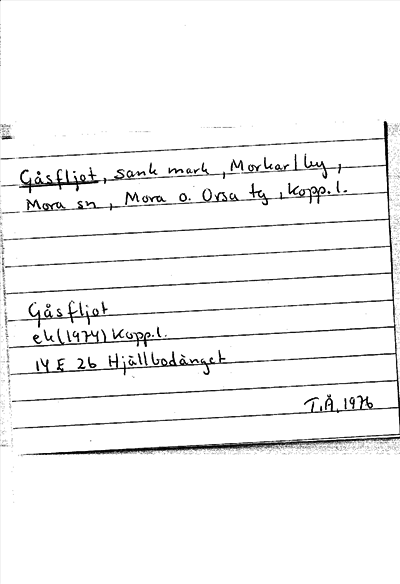 Gåsfljot, sank mark, Morkarlby,
Mora sn, Mora o. Orsa tg, Kopp.l.
Gåsfljot
ek(1974) Kopp.l.
14 E 2b Hjällbodänget
T.Å. 1976